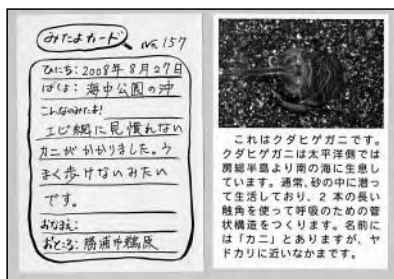 みたよカード
No.157
ひにち:2008年8月27日
ばしょ:海中公園の沖
こんなのみたよ!
エビ網に見慣れない
カニがかかりました。う
まく歩けないみたい
です。
おなまえ:
おところ:勝浦市鵜原
これはクダヒゲガニです。
クダヒゲガニは太平洋側では
房総半島より南の海に生息し
ています。通常、砂の中に潜っ
て生活しており、2本の長い
触角を使って呼吸のための管
状構造をつくります。名前に
は「カニ」とありますが、ヤ
ドカリに近いなかまです。